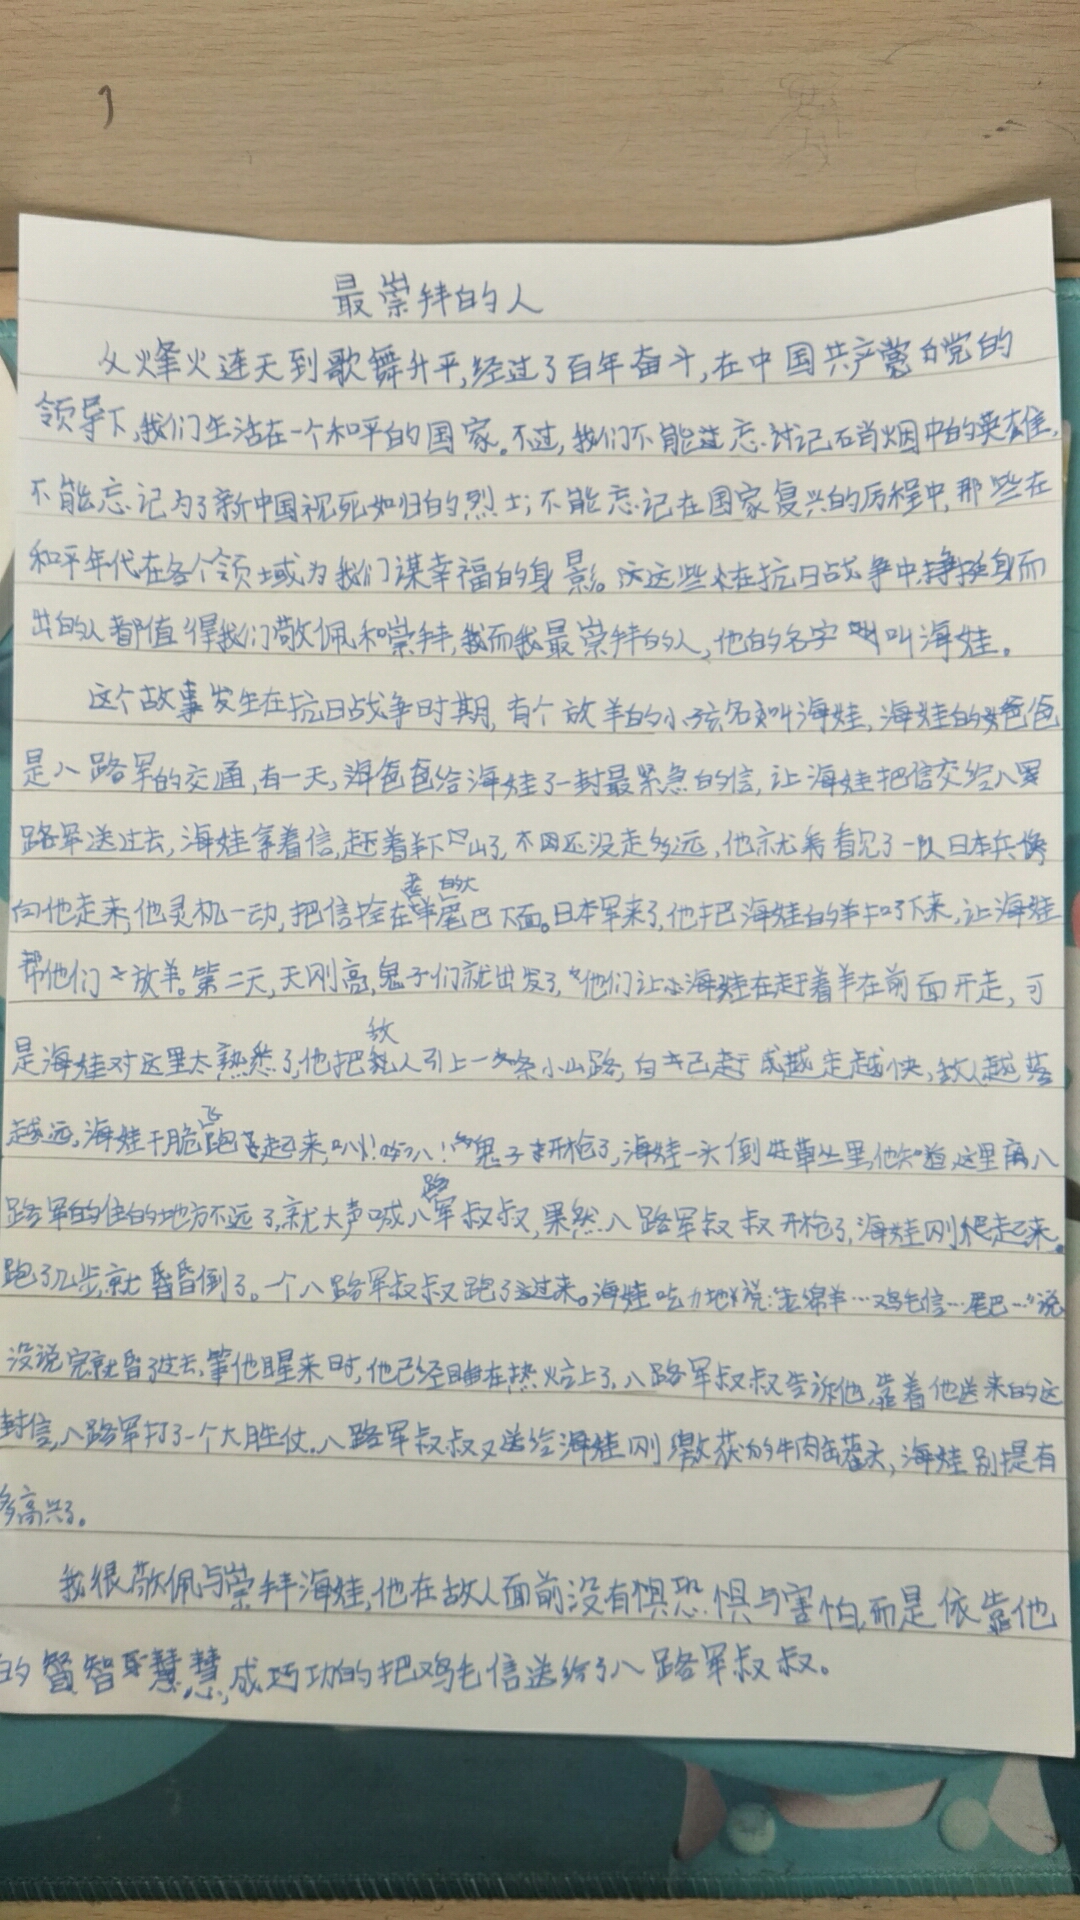 最崇拜的人
从烽火连天到歌舞升平,经过了百年奋斗,在中国共产党的
领导下,我们生活在一个和平的国家。不过,我们不能忘记硝烟中的英雄,
不能忘记为了新中国视死如归的烈士;不能忘记在国家复兴的历程中,那些在
和平年代在各个领域为我们谋幸福的身影。这些在抗日战争中挺身而
出的人都值得我们敬佩和崇拜,而我最崇拜的人,他的名字叫海娃。
这个故事发生在抗日战争时期,有个放羊的小孩名叫海娃,海娃的爸爸
是八路军的交通,有一天,海爸爸给海娃了一封最紧急的信,让海娃把信交给八
路军送过去,海娃拿着信,赶着羊下山了,不因还没走多远,他就看见了一队日本兵
向他走来,他灵机一动,把信拴在老羊的大尾巴下面。日本军来了,他把海娃的羊扣了下来,让海娃
帮他们放羊。第二天,天刚亮,鬼子们就出发了,他们让海娃在赶着羊在前面开走,可
是海娃对这里太熟悉了,他把敌人引上一条小山路,自己走成越走越快,敌人越落
越远,海娃干脆飞跑起来,叭!叭!鬼子开枪了,海娃一头倒在草丛里,他知道,这里离八
路军的住的地方不远了,就大声喊八路军叔叔,果然八路军叔叔开枪了,海娃刚爬起来。
跑了几步,就昏倒了。一个八路军叔叔跑了过来。海娃吃力地说:“老绵羊…鸡毛信…尾巴…”说
没说完就昏了过去,等他醒来时,他已经睡在热炕上了,八路军叔叔告诉他,靠着他送来的这
封信,八路军打了一个大胜仗,八路军叔叔又送给海娃刚缴获的牛肉罐头,海娃别提有
多高兴了。
我很敬佩与崇拜海娃,他在敌人面前没有恐惧与害怕,而是依靠他
的智慧,成功的把鸡毛信送给了八路军叔叔。